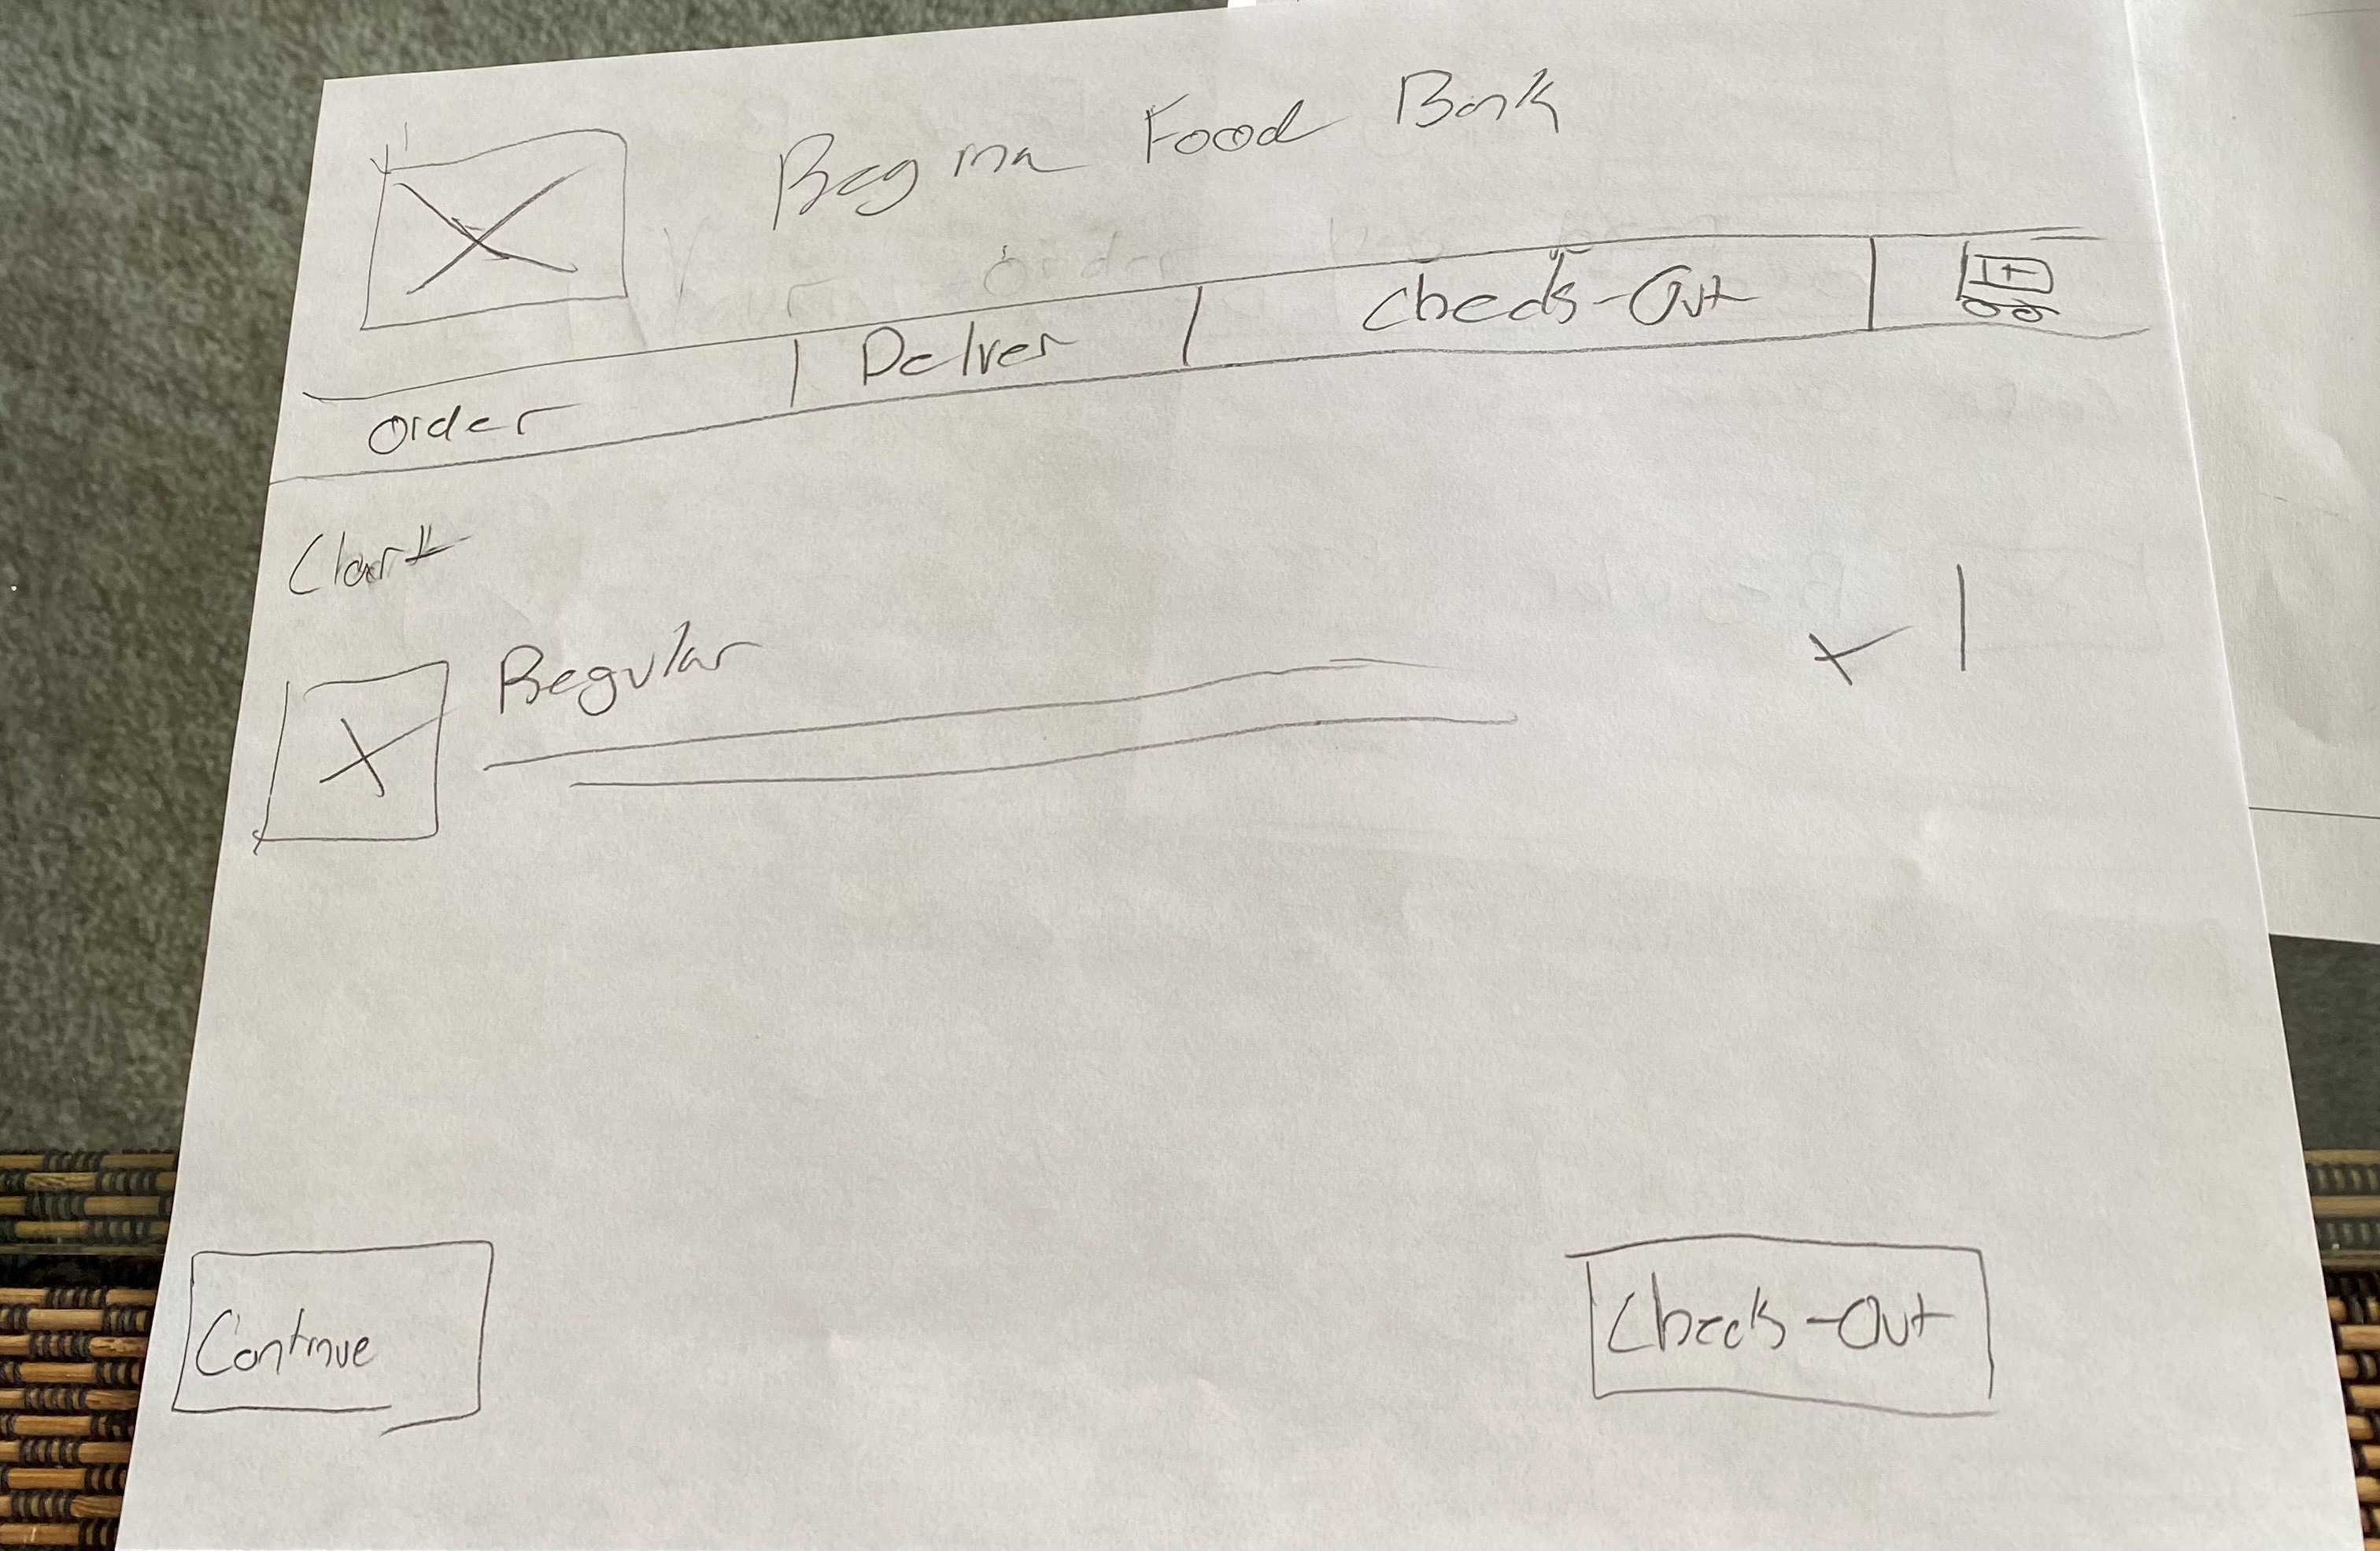 Regina Food Bank
Order Deliver Check-Out
Cart
Regular
x 1
Continue
Check-Out